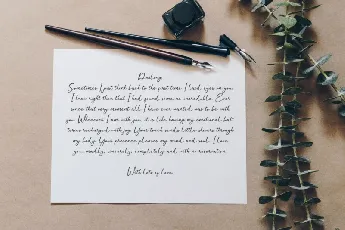 Darling
Sometimes I just think back to the first time I laid eyes on you
I knew right then that I had found someone incredible. Ever
since that very moment all I have ever wanted was to be with
you. Whenever I am with you, it is like having my emotional but
tence recharged with joy. Your touch sends a little shiver through
my body. Your presence pleases my mind and soul. I love
you madly, sincerely, completely and with no reservation.
With lots of love